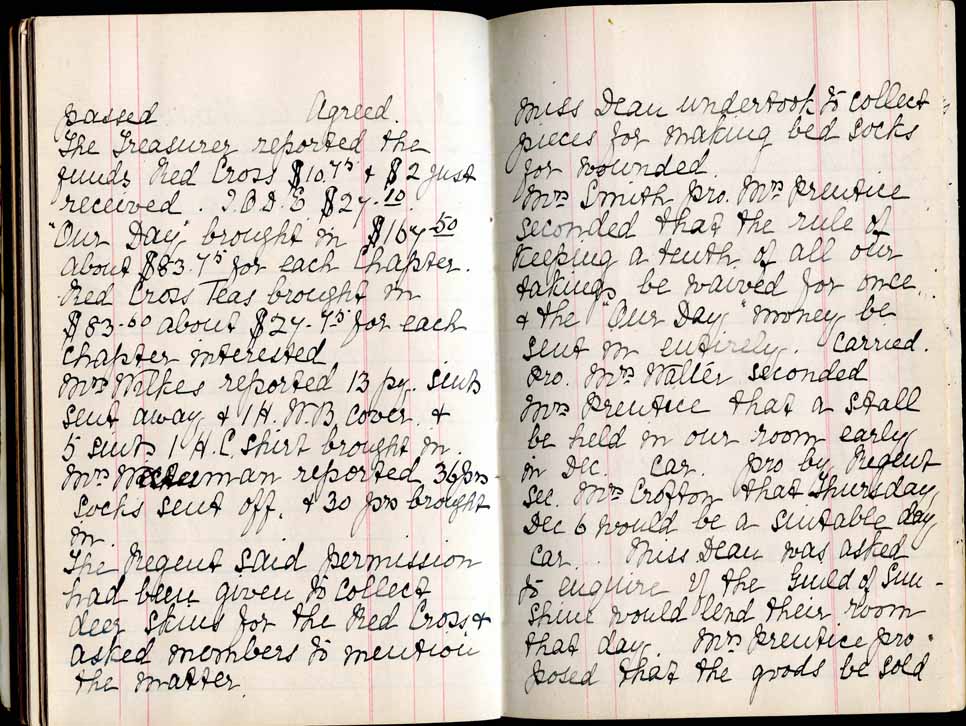 passed Agreed.
The Treasurer reported the
funds Red Cross $10.75 & $2 just
received. I.O.D.E $27.10.
"Our Day" brought in $167.50
about $83.75 for each Chapter.
Red Cross Teas brought in
$83.60 about $27.75 for each
chapter interested
Mrs Wilkes reported 13 py. suits
sent away & 1 H.W.B. cover. &
5 suits 1 H.C. shirt brought in.
Mrs man reported 36 prs
socks sent off. & 30 prs brought
in.
The Regent said permission
had been given to collect
deer skins for the Red Cross &
asked members to mention
the matter.
Miss Dean undertook to collect
pieces for making bed socks
for wounded.
Mrs Smith pro. Mrs Prentice
seconded that the rule of
keeping a tenth of all our
takings be waived for once.
& the "Our Day" money be
sent in entirely. Carried.
Pro. Mrs Waller seconded
Mrs Prentice that a stall
be held in our room early
in Dec. Car. Pro by Regent
Sec. Mrs Crofton that Thursday
Dec 6 would be a suitable day
Car. Miss Dean was asked
to enquire if the Guild of Sun-
shine would lend their room
that day. Mrs Prentice pro-
posed that the goods be sold